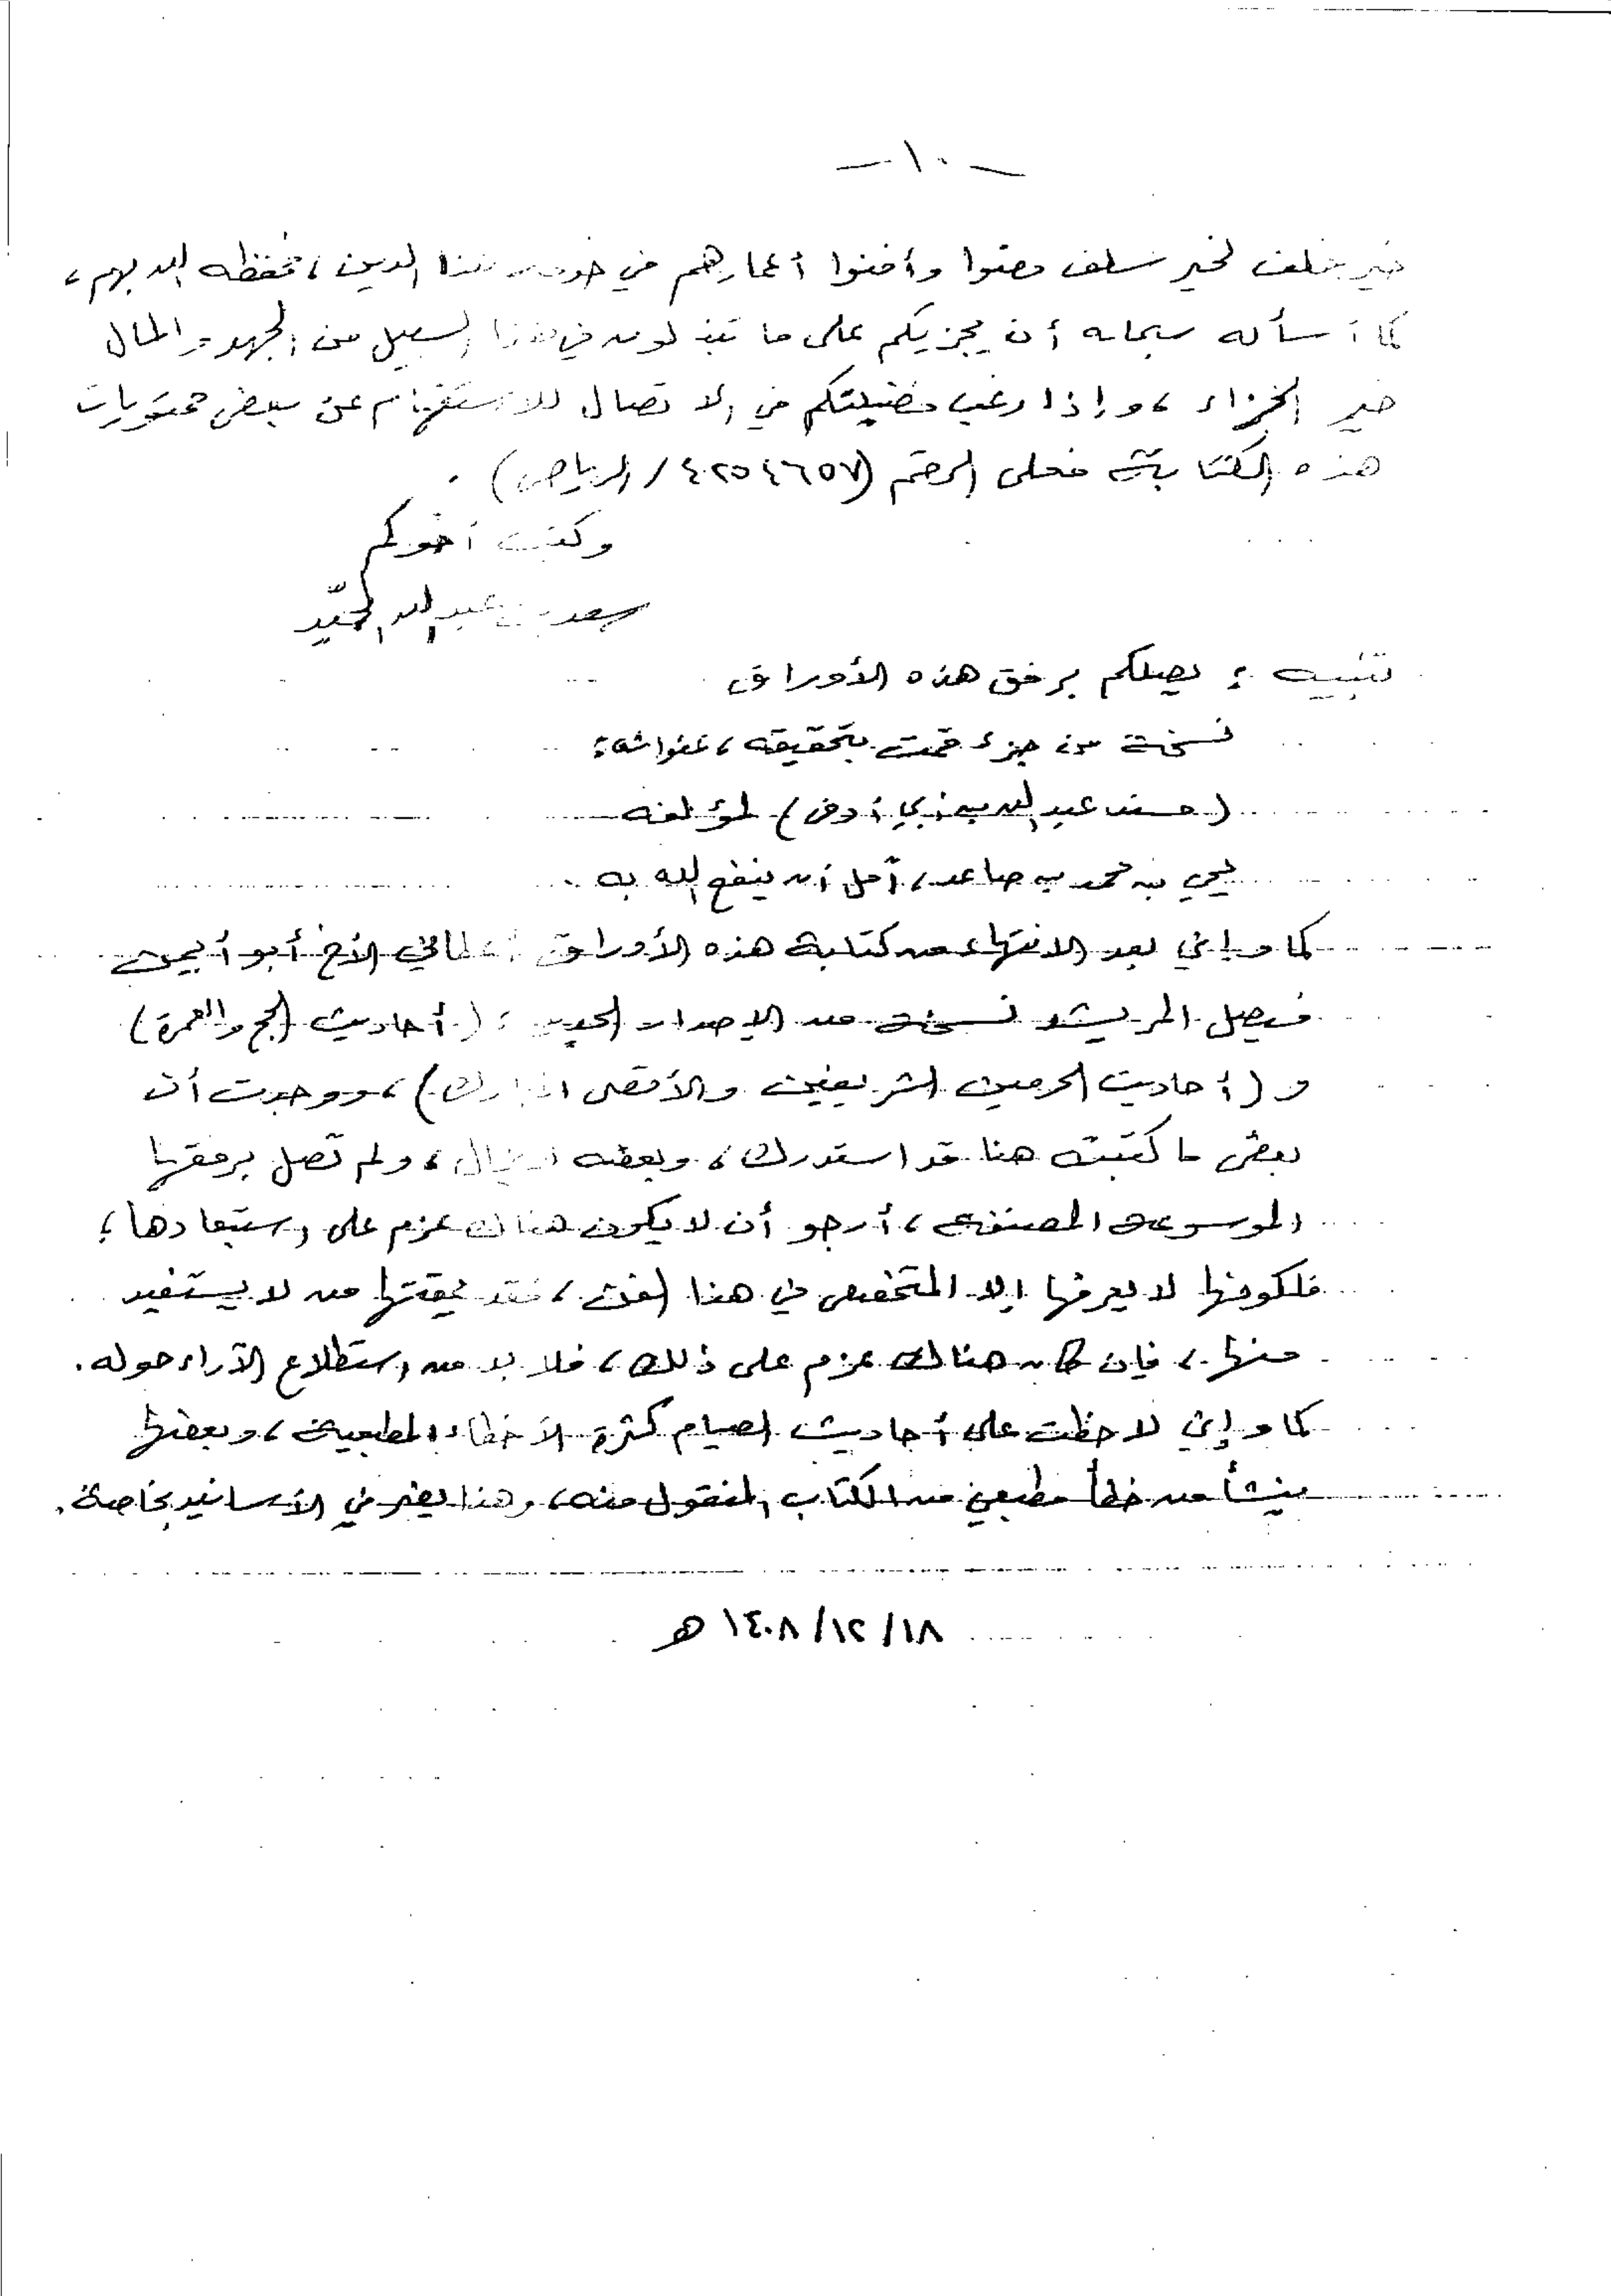 -١٠-
خير خلف لخير سلف مضوا وأفنوا أعمارهم في خدمة هذا الدين، فحفظه الله بهم،
كما أسأله سبحانه أن يجزيكم على ما تبذلونه في هذا السبيل من الجهد والمال
خير الجزاء، وإذا رغب فضيلتكم في الاتصال للاستفهام عن بعض محتويات
هذه الكتابة فعلى الرقم (٤٢٥٤٦٥٧/الرياض).
وكتب أخوكم
سعد بن عبد الله الحميّد
تنبيه: يصلكم برفق هذه الأوراق
نسخة من جزء قمت بتحقيقه، عنوانه:
(مسند عبد الله بن أبي أوفى) لمؤلفه
يحيى بن محمد بن صاعد، آمل أن ينفع الله به.
كما وإني بعد الانتهاء من كتابة هذه الأوراق أعطاني الأخ أبو أيمن
فيصل نسخة من الإصدار الجديد: (أحاديث الحج والعمرة)
و (أحاديث الحرمين الشريفين والأقصى المبارك)، ووجدت أن
بعض ما كتبته هنا قد استدرك، وبعضه، ولم تصل برفقها
الموسوعة المصنفة، أرجو أن لا يكون هناك عزم على استبعادها؛
فلكونها لا يعرفها إلا المتخصص في هذا الفن، فقد من لا يستفيد
منها، فإن كان هناك عزم على ذلك، فلا بد من استطلاع الآراء حوله.
كما وإني لاحظت على أحاديث الصيام كثرة الأخطاء المطبعية، وبعضها
ينشأ من خطأ مطبعي من الكتاب المنقول منه، وهذا يضر في الأسانيد بخاصة.
١٨/١٢/١٤٠٨ هـ